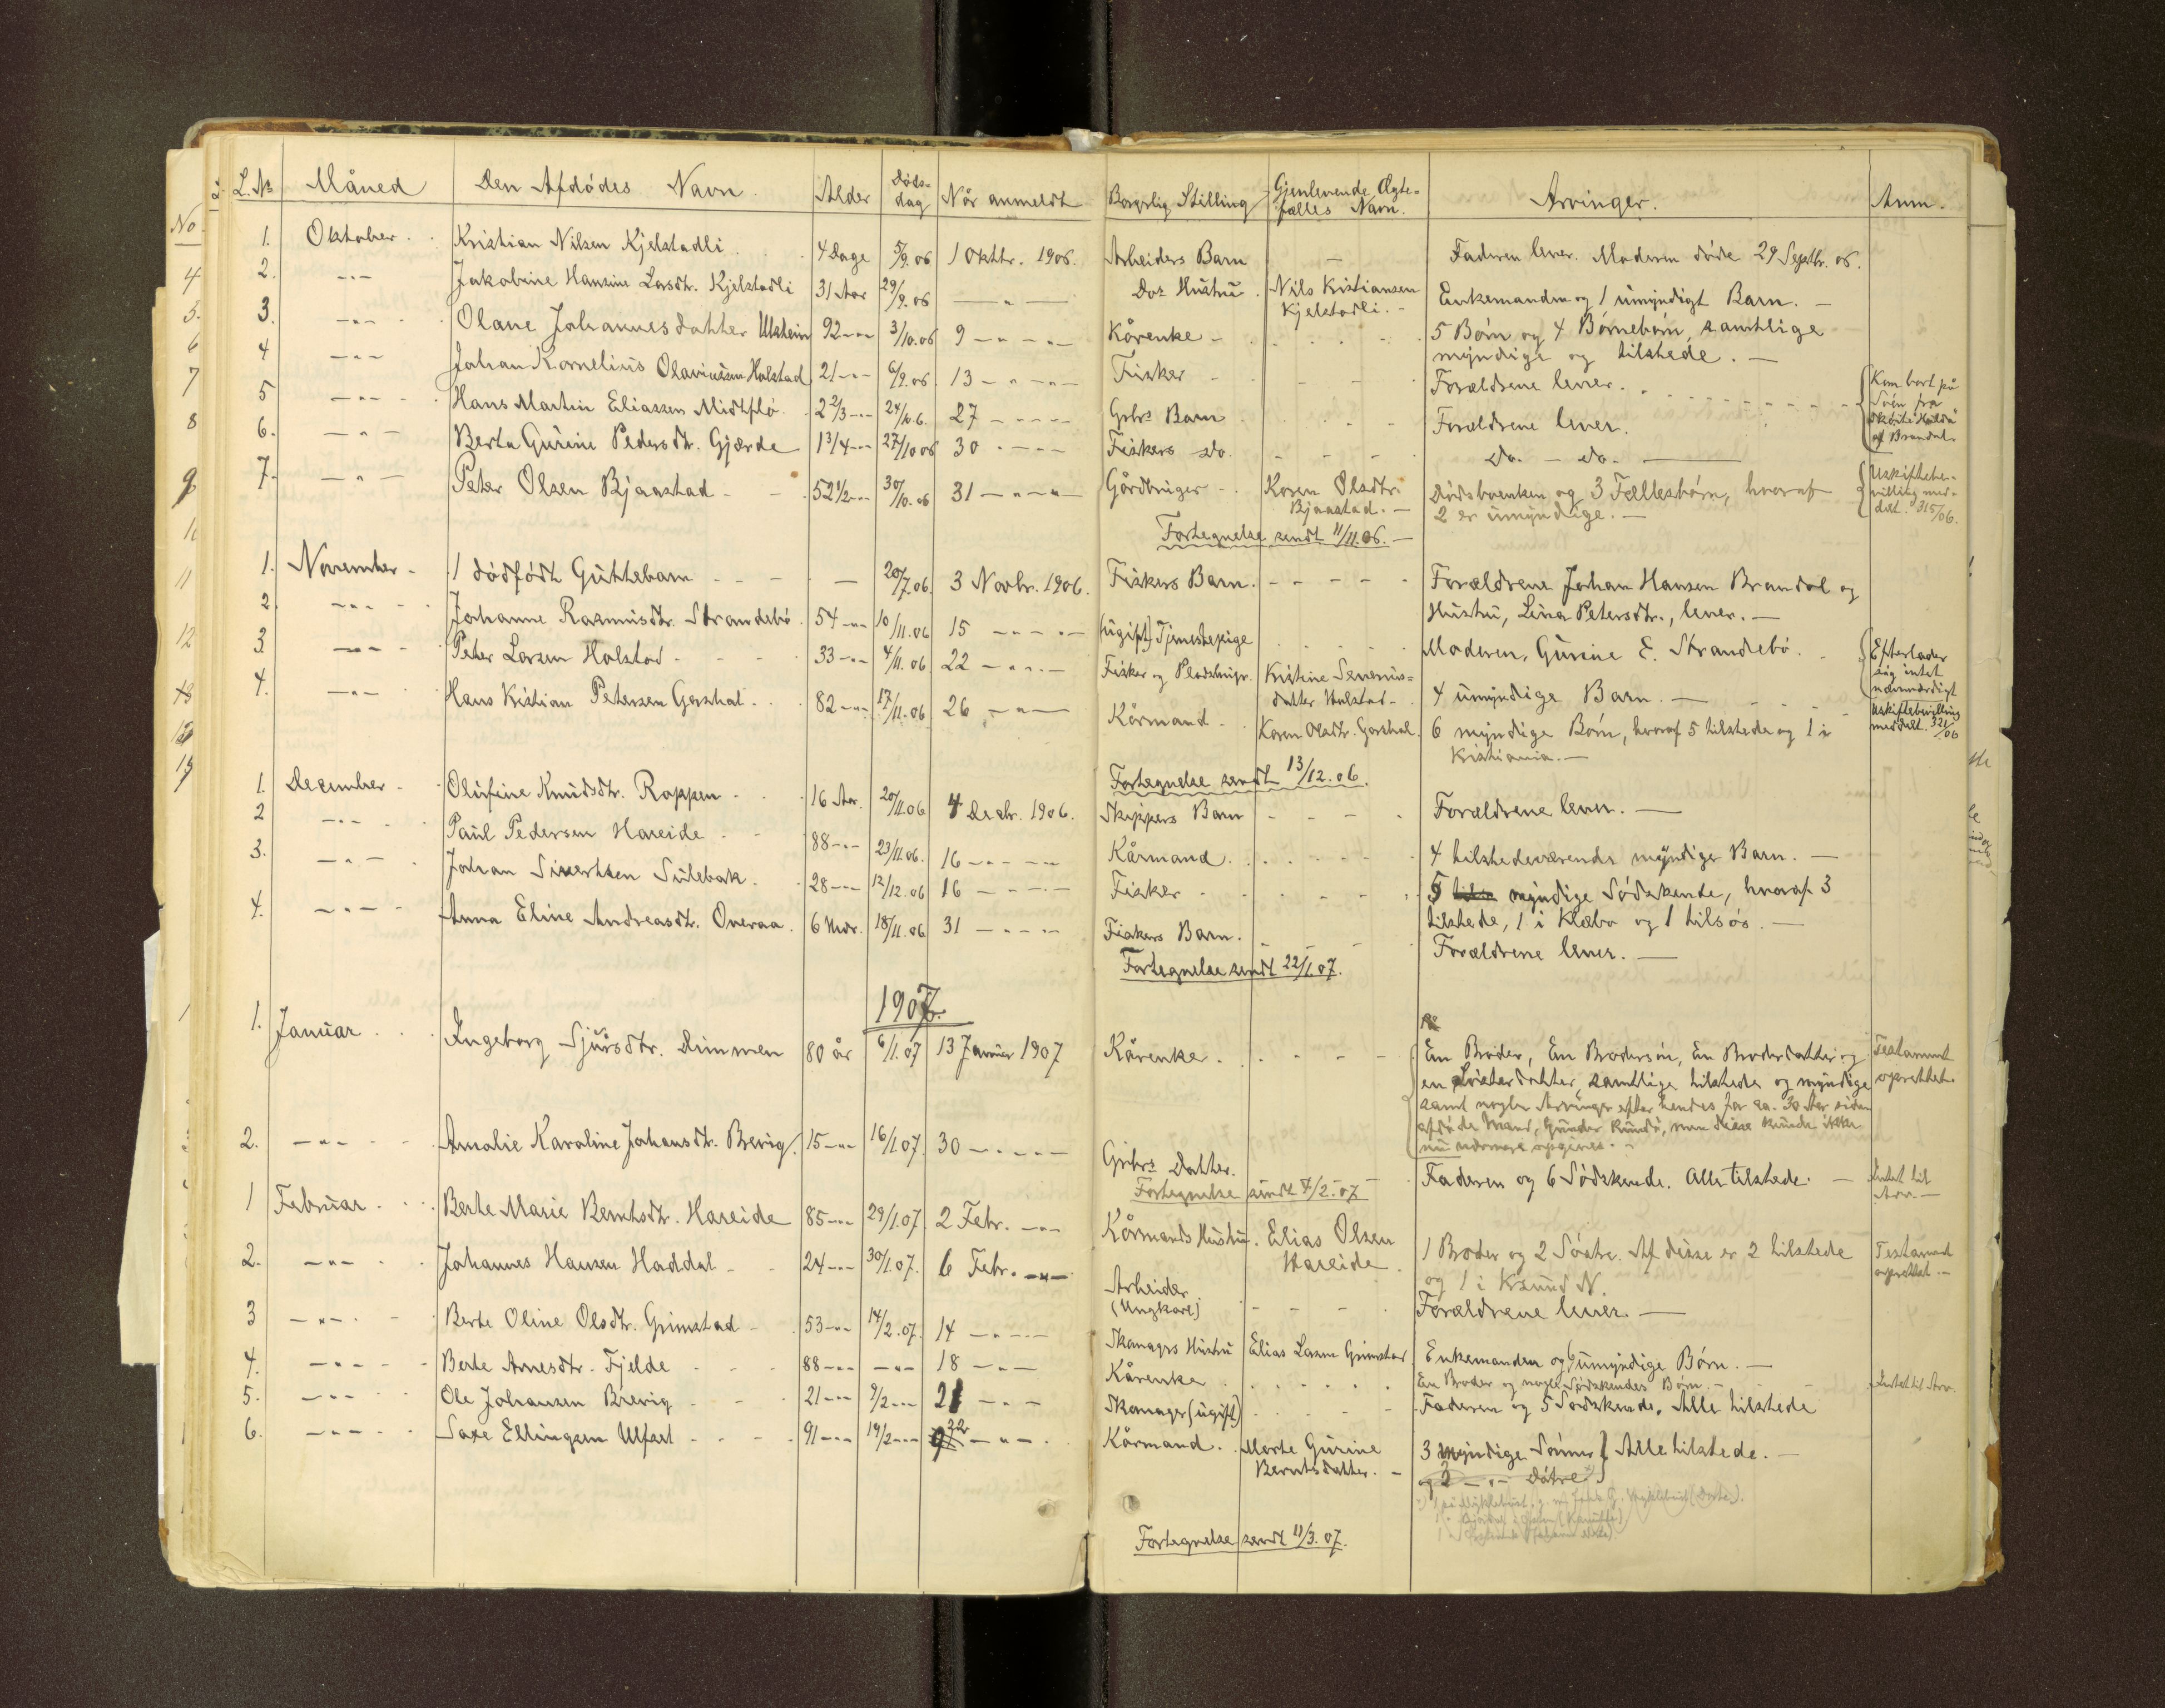 L. № Måned Den Afdødes Navn. Alder Døds-dag Når anmeldt Borgerlig Stilling Gjenlevende Ægte-fælles Navn. Arvinger. Anm.
1. Oktober. Kristian Nilsen Kjelstadli 4 Dage 5/9.06 1 Oktbr. 1906. Arbeiders Barn — Faderen lever. Moderen døde 29 Septbr. 06.
2. —"— Jakobine Hansine Larsdtr. Kjelstadli 31 Aar 29/9.06 — " — Dos Hustru. Nils Kristiansen Enkemanden og 1 umyndigt Barn. —
Kjelstadli. -
3. —"— Olane Johannesdatter Ulstein 92 —"— 3/10.06 9 —"—"— Kårenke - 5 Børn og 4 Børnebørn, samtlige
myndige og tilstede. —
4 —"— Johan Kornelius Olaviussen Halstad 21 —"— 6/9.06. 13 —"—"— Fisker - Forældrene lever. { Kom bort på
Søen fra
Skøite "Hilda"
af Brandal.
5 —"— Hans Martin Eliassen Midtflø 2 2/3 —"— 24/10.6. 27 —"—"— Gbrs Barn Forældrene lever.
6. —"— Berta Gurine Pedersdtr. Gjærde 1 3/4 —"— 27/10 06 30 —"—"— Fiskers do. - - - do. - do. ——
7. —"— Peter Olsen Bjaastad - - 52 1/2 —"— 30/10.06 31 —"—"— Gårdbruger - Karen Olsdtr. Dødsboenken og 3 Fællesbørn, hvoraf { Uskiftebe-
Bjaastad. — 2 er umyndige. — villing med-
delt. 315/06.
Fortegnelse sendt 11/11.06. —
1. November - 1 dødfødt Guttebarn - - - — 20/7.06. 3 Novbr. 1906. Fiskers Barn. - - - - - Forældrene Johan Hansen Brandal og
Hustru, Lina Petersdtr., lever. —
2. —"— Johanne Rasmusdtr. Strandebø. 54 —"— 10/11.06 15 —"—"— (ugift) Tjenestepige Moderen, Gurine E. Strandebø. { Efterlader
sig intet
nævneværdigt
3. —"— Peter Larsen Halstad - - - 33 —"— 4/11.06. 22 —"—"— Fisker og Pladsbrugr. Kristine Severins-
datter Halstad - 4 umyndige Barn. —
4. —"— Hans Kristian Petersen Gaashol. 82 —"— 17/11.06 26 —"— Kårmand - Karen Olsdtr. Gaashol. 6 myndige Børn, hvoraf 5 tilstede og 1 i Uskiftebevilling
Kristiania. — meddelt. 321/06
Fortegnelse sendt 13/12.06.
1. December - Olufine Knudsdtr. Roppen - 16 Aar. 20/11.06 4 Decbr. 1906. Skippers Barn - - - - Forældrene lever. —
2 —"— Paul Pedersen Hareide - 88 —"— 23/11.06. 16 —"—"— Kårmand. 4 tilstedeværende myndige Barn. —
3. —"— Johan Sivertsen Sulebak. 28 —"— 12/12.06 16 —"—"— Fisker - 5 myndige Sødskende, hvoraf 3
tilstede, 1 i Klæbo og 1 tilsøs. —
4. —"— Anna Eline Andreasdtr. Overaa. 6 Mdr. 18/11.06 31 —"—"— Fiskers Barn. - - - Forældrene lever. —
Fortegnelse sendt 22/1.07.
1907.
1. Januar . . Ingeborg Sjursdtr. Dimmen 80 år 6/1.07 13 Januar 1907 Kårenke. - - - { En Broder, En Brodersøn, En Broderdatter og Testament
en Søsterdatter, samtlige tilstede og myndige oprettet.
samt nogle Arvinger efter hendes for ca. 30 Aar siden
afdøde Mand, Gunder Runde, men disse kunde ikke
nu nærmere opgives. -
2. —"— Amalie Karoline Johansdtr. Brevig. 15 —"— 16/1.07. 30 —"—"— Gbrs Datter. Faderen og 6 Sødskende. Alle tilstede. — Intet til
Arv. —
Fortegnelse sendt 4/2.07
1 Februar . . Berte Marie Berntsdtr. Hareide 85 —"— 29/1.07. 2 Febr. —"— Kårmands Hustru. Elias Olsen 1 Broder og 2 Søstre. Af disse er 2 tilstede Testament
Hareide. og 1 i Krsund N. oprettet. —
2. —"— Johannes Hansen Haddal - 24 —"— 30/1.07. 6 Febr. —"— Arbeider
(Ungkarl) - - - - Forældrene lever. —
3 —"— Berte Oline Olsdtr. Grimstad - 53 —"— 14/2.07. 14 —"—"— Skomagers Hustru Elias Larsen Grimstad. Enkemanden og 6 umyndige Børn. —
4. —"— Berte Arnesdtr. Fjelde - - - 88 —"— —"— 18 —"— Kårenke En Broder og nogle Sødskendes Børn. - Intet til Arv.
5. —"— Ole Johansen Brevig - - - 21 —"— 9/2 —"— 21 —"— Skomager (ugift) Faderen og 5 Sødskende. Alle tilstede
6. —"— Saxe Ellingsen Ulfset - - - 91 —"— 19/2 —"— 22 —"— Kårmand. Marte Gurine 3 myndige Sønner } Alle tilstede. —
Berntsdatter. - og 2 —"— Døtre
Fortegnelse sendt 11/3.07.